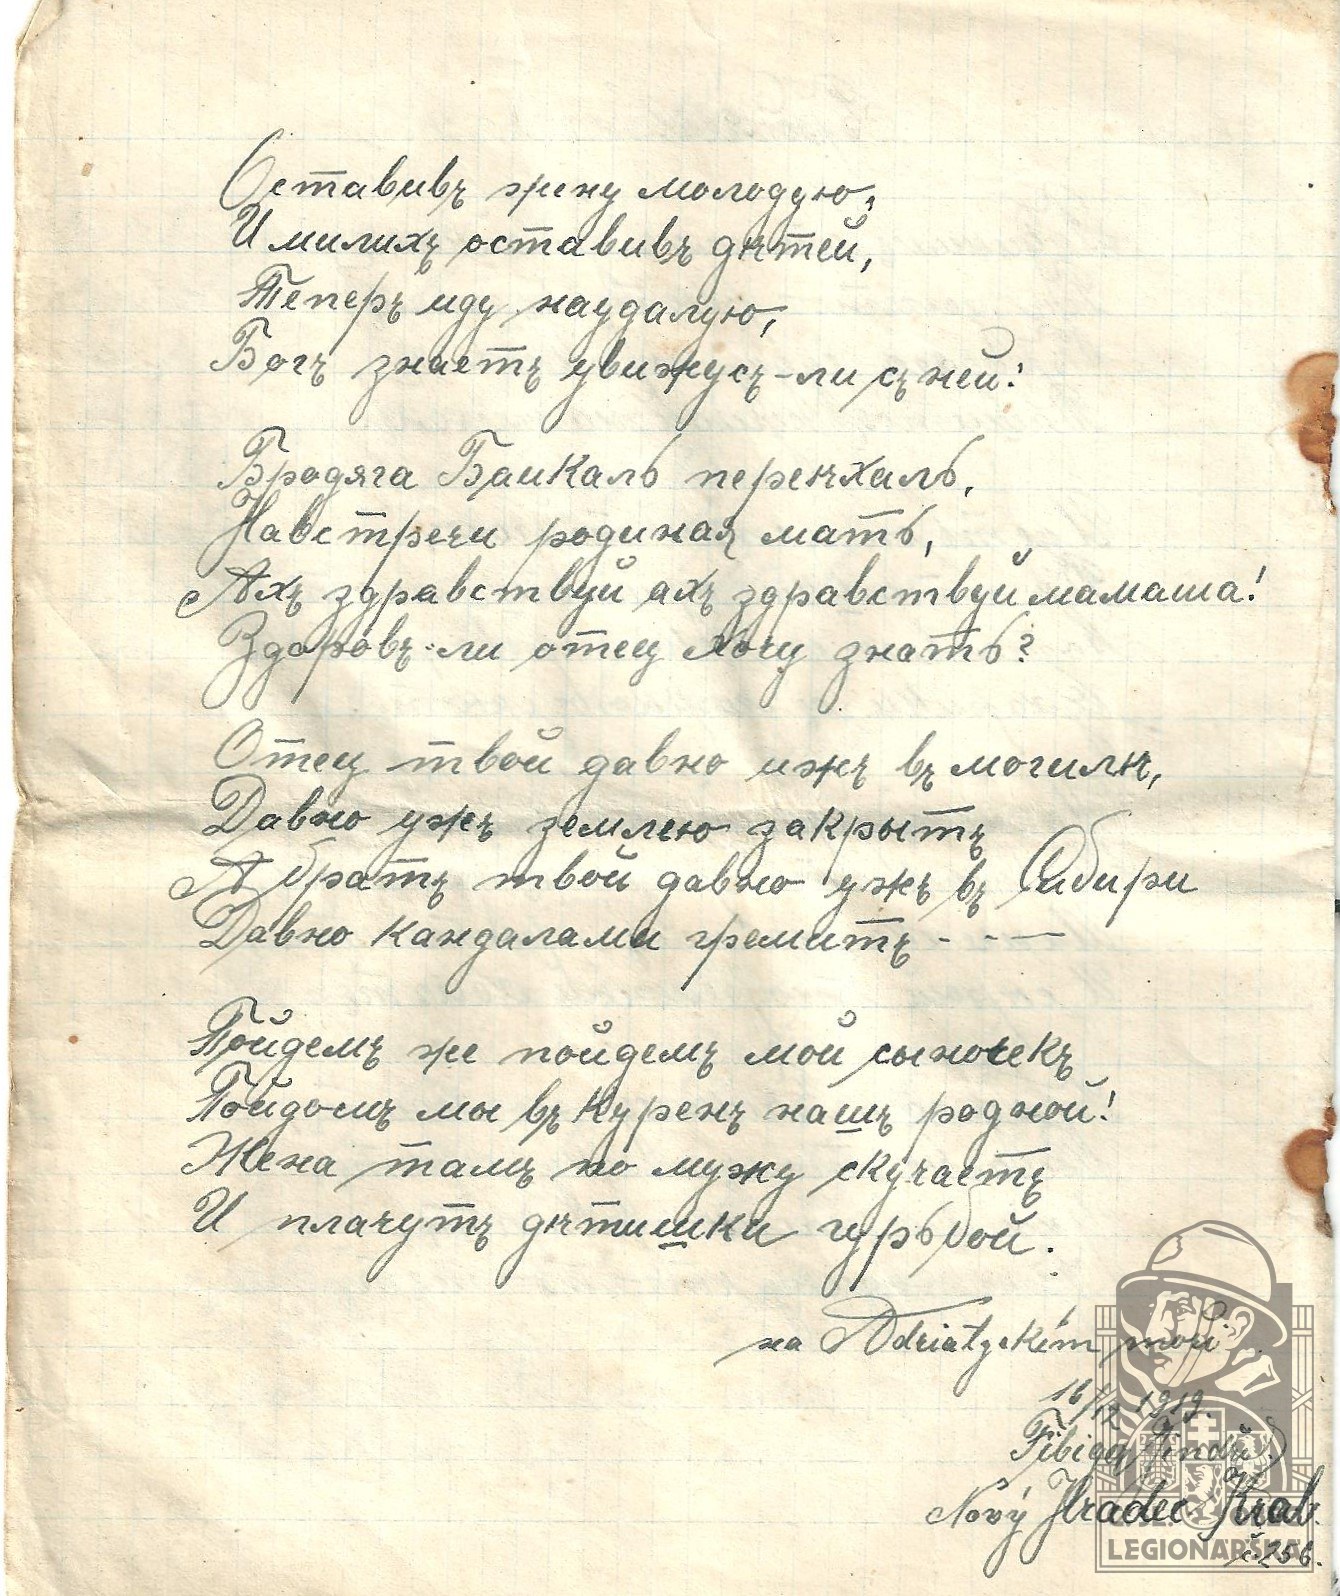 Оставивъ жену молодую,
И милихъ оставивъ дѣтей,
Теперъ иду наудалую,
Богъ знаетъ увижусъ-ли съ ней!
Бродяга Баикаль перенхаль,
Навстречи родиная мать,
Ахъ здравствуй ахъ здравствуй мамаша!
Здоровъ-ли отец хочу знать?
Отец твой давно ижъ въ могилѣ,
Давно ужъ землею закрытъ
А братъ твой давно ужъ въ Сибири
Давно кандалами гремитъ - - —
Пойдемъ же пойдемъ мой сыночекъ
Пойдомъ мы въ куренъ нашъ родной!
Жена тамъ по мужу скучаетъ
И плачутъ дѣтишки гурьбой.
na Adriatzckém moři
16/12 1919.
Fibiger Jindř.
Nový Hradec Král.
č. 256.
LEGIONÁŘSKÁ